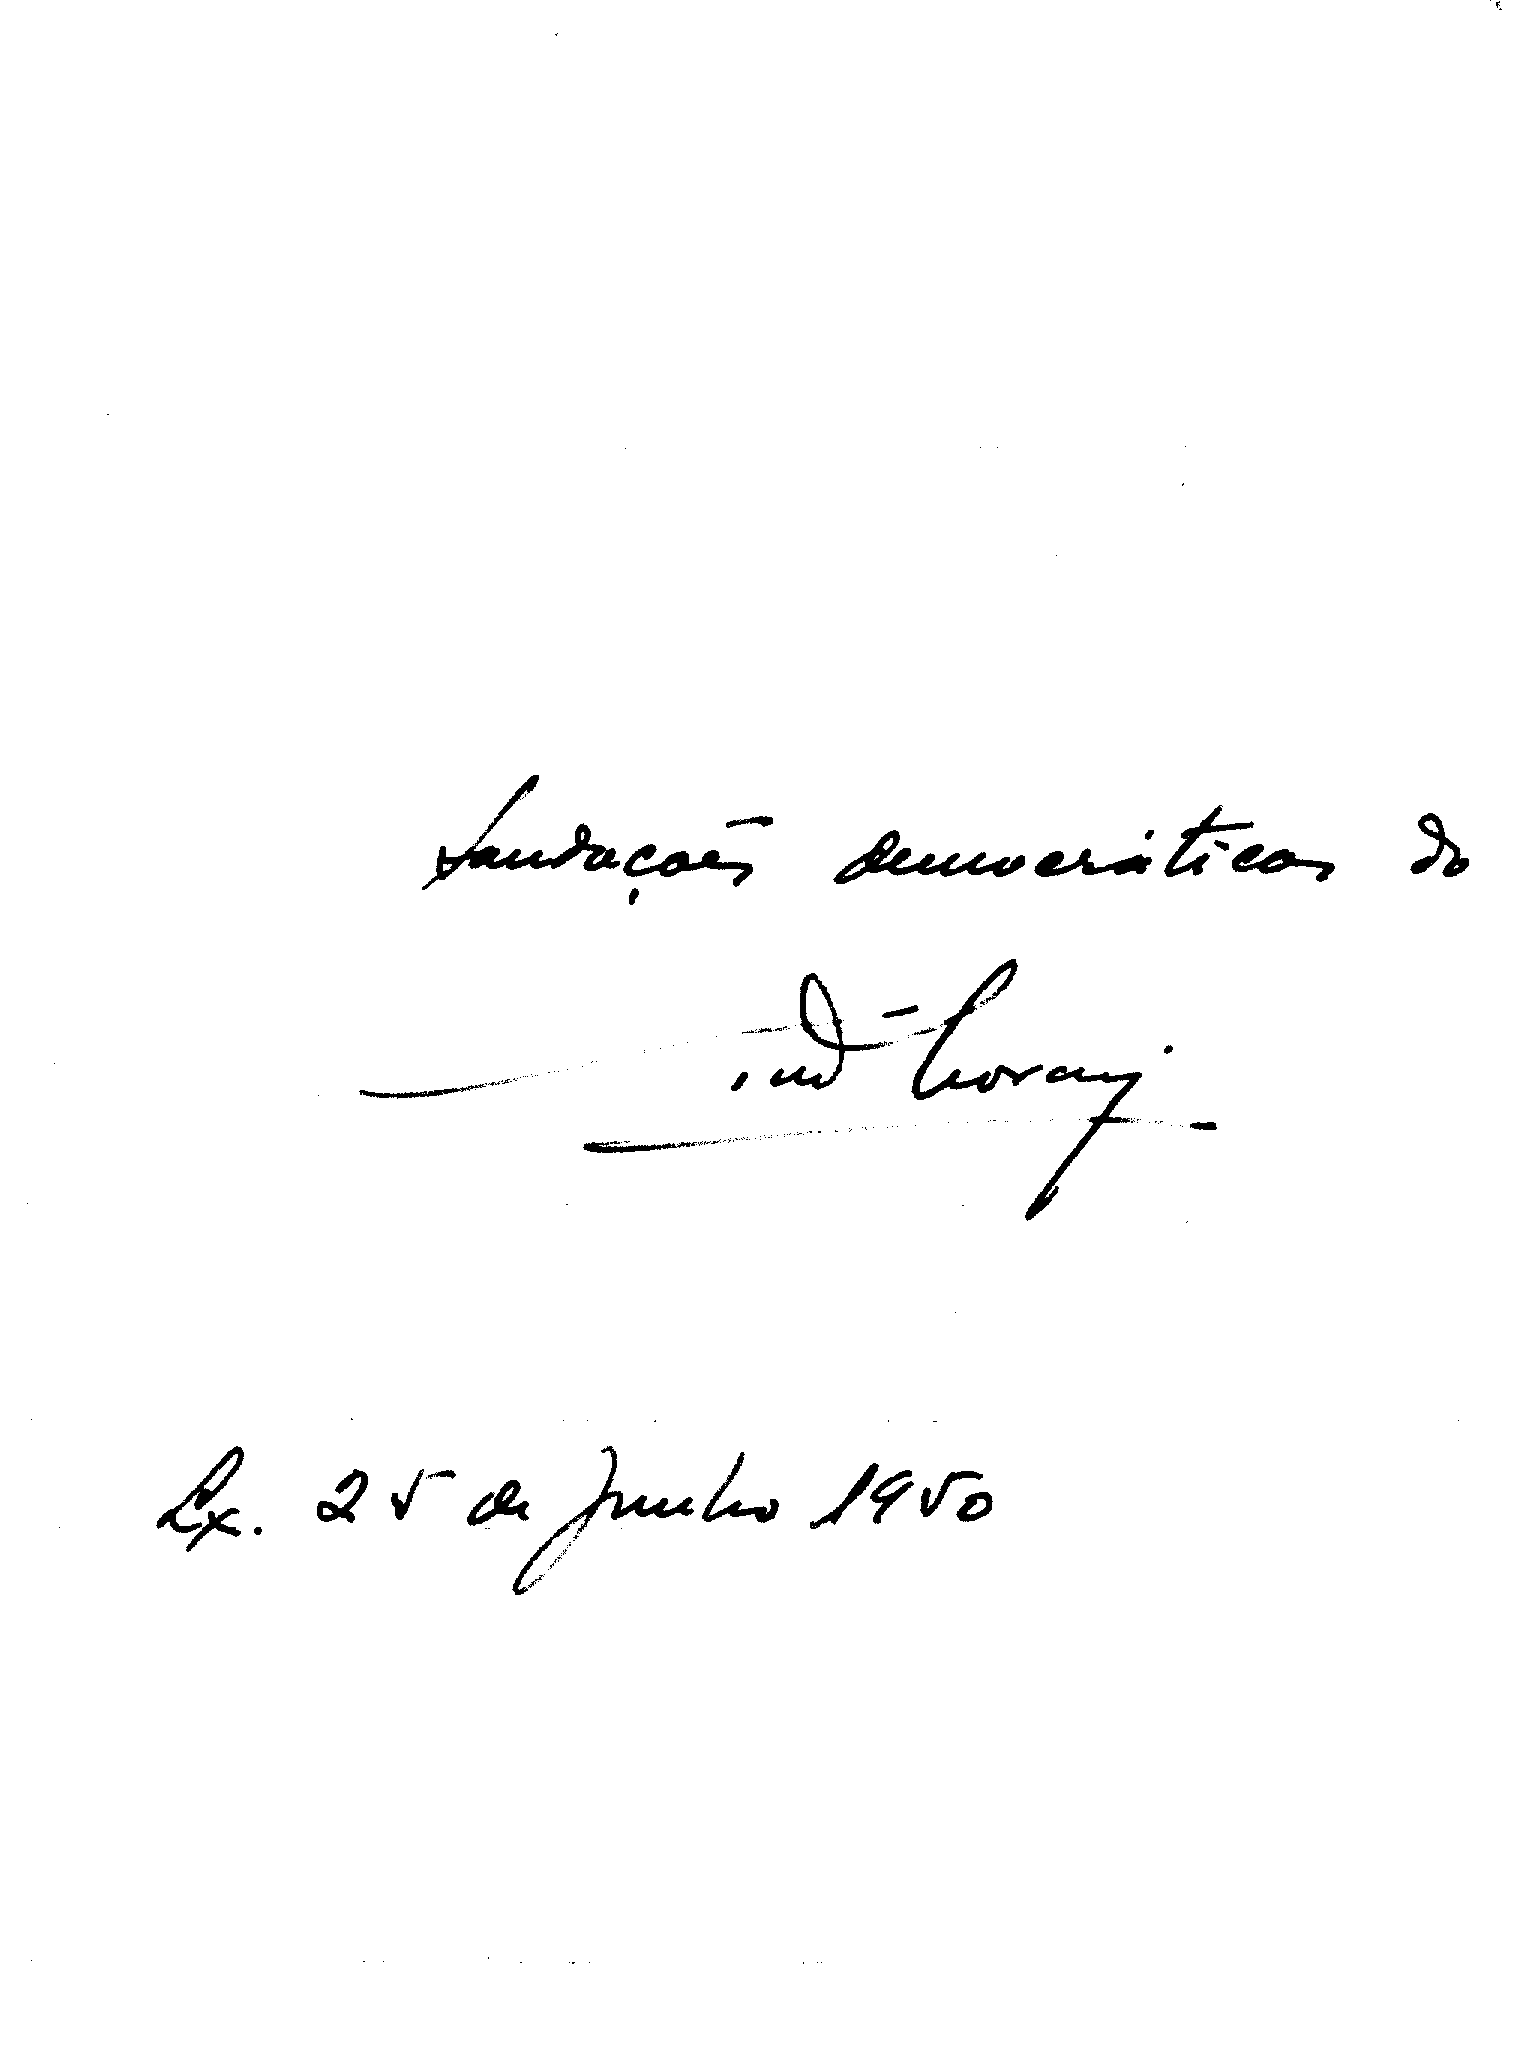 Saudações democráticas do
Lx. 25 de Junho 1950